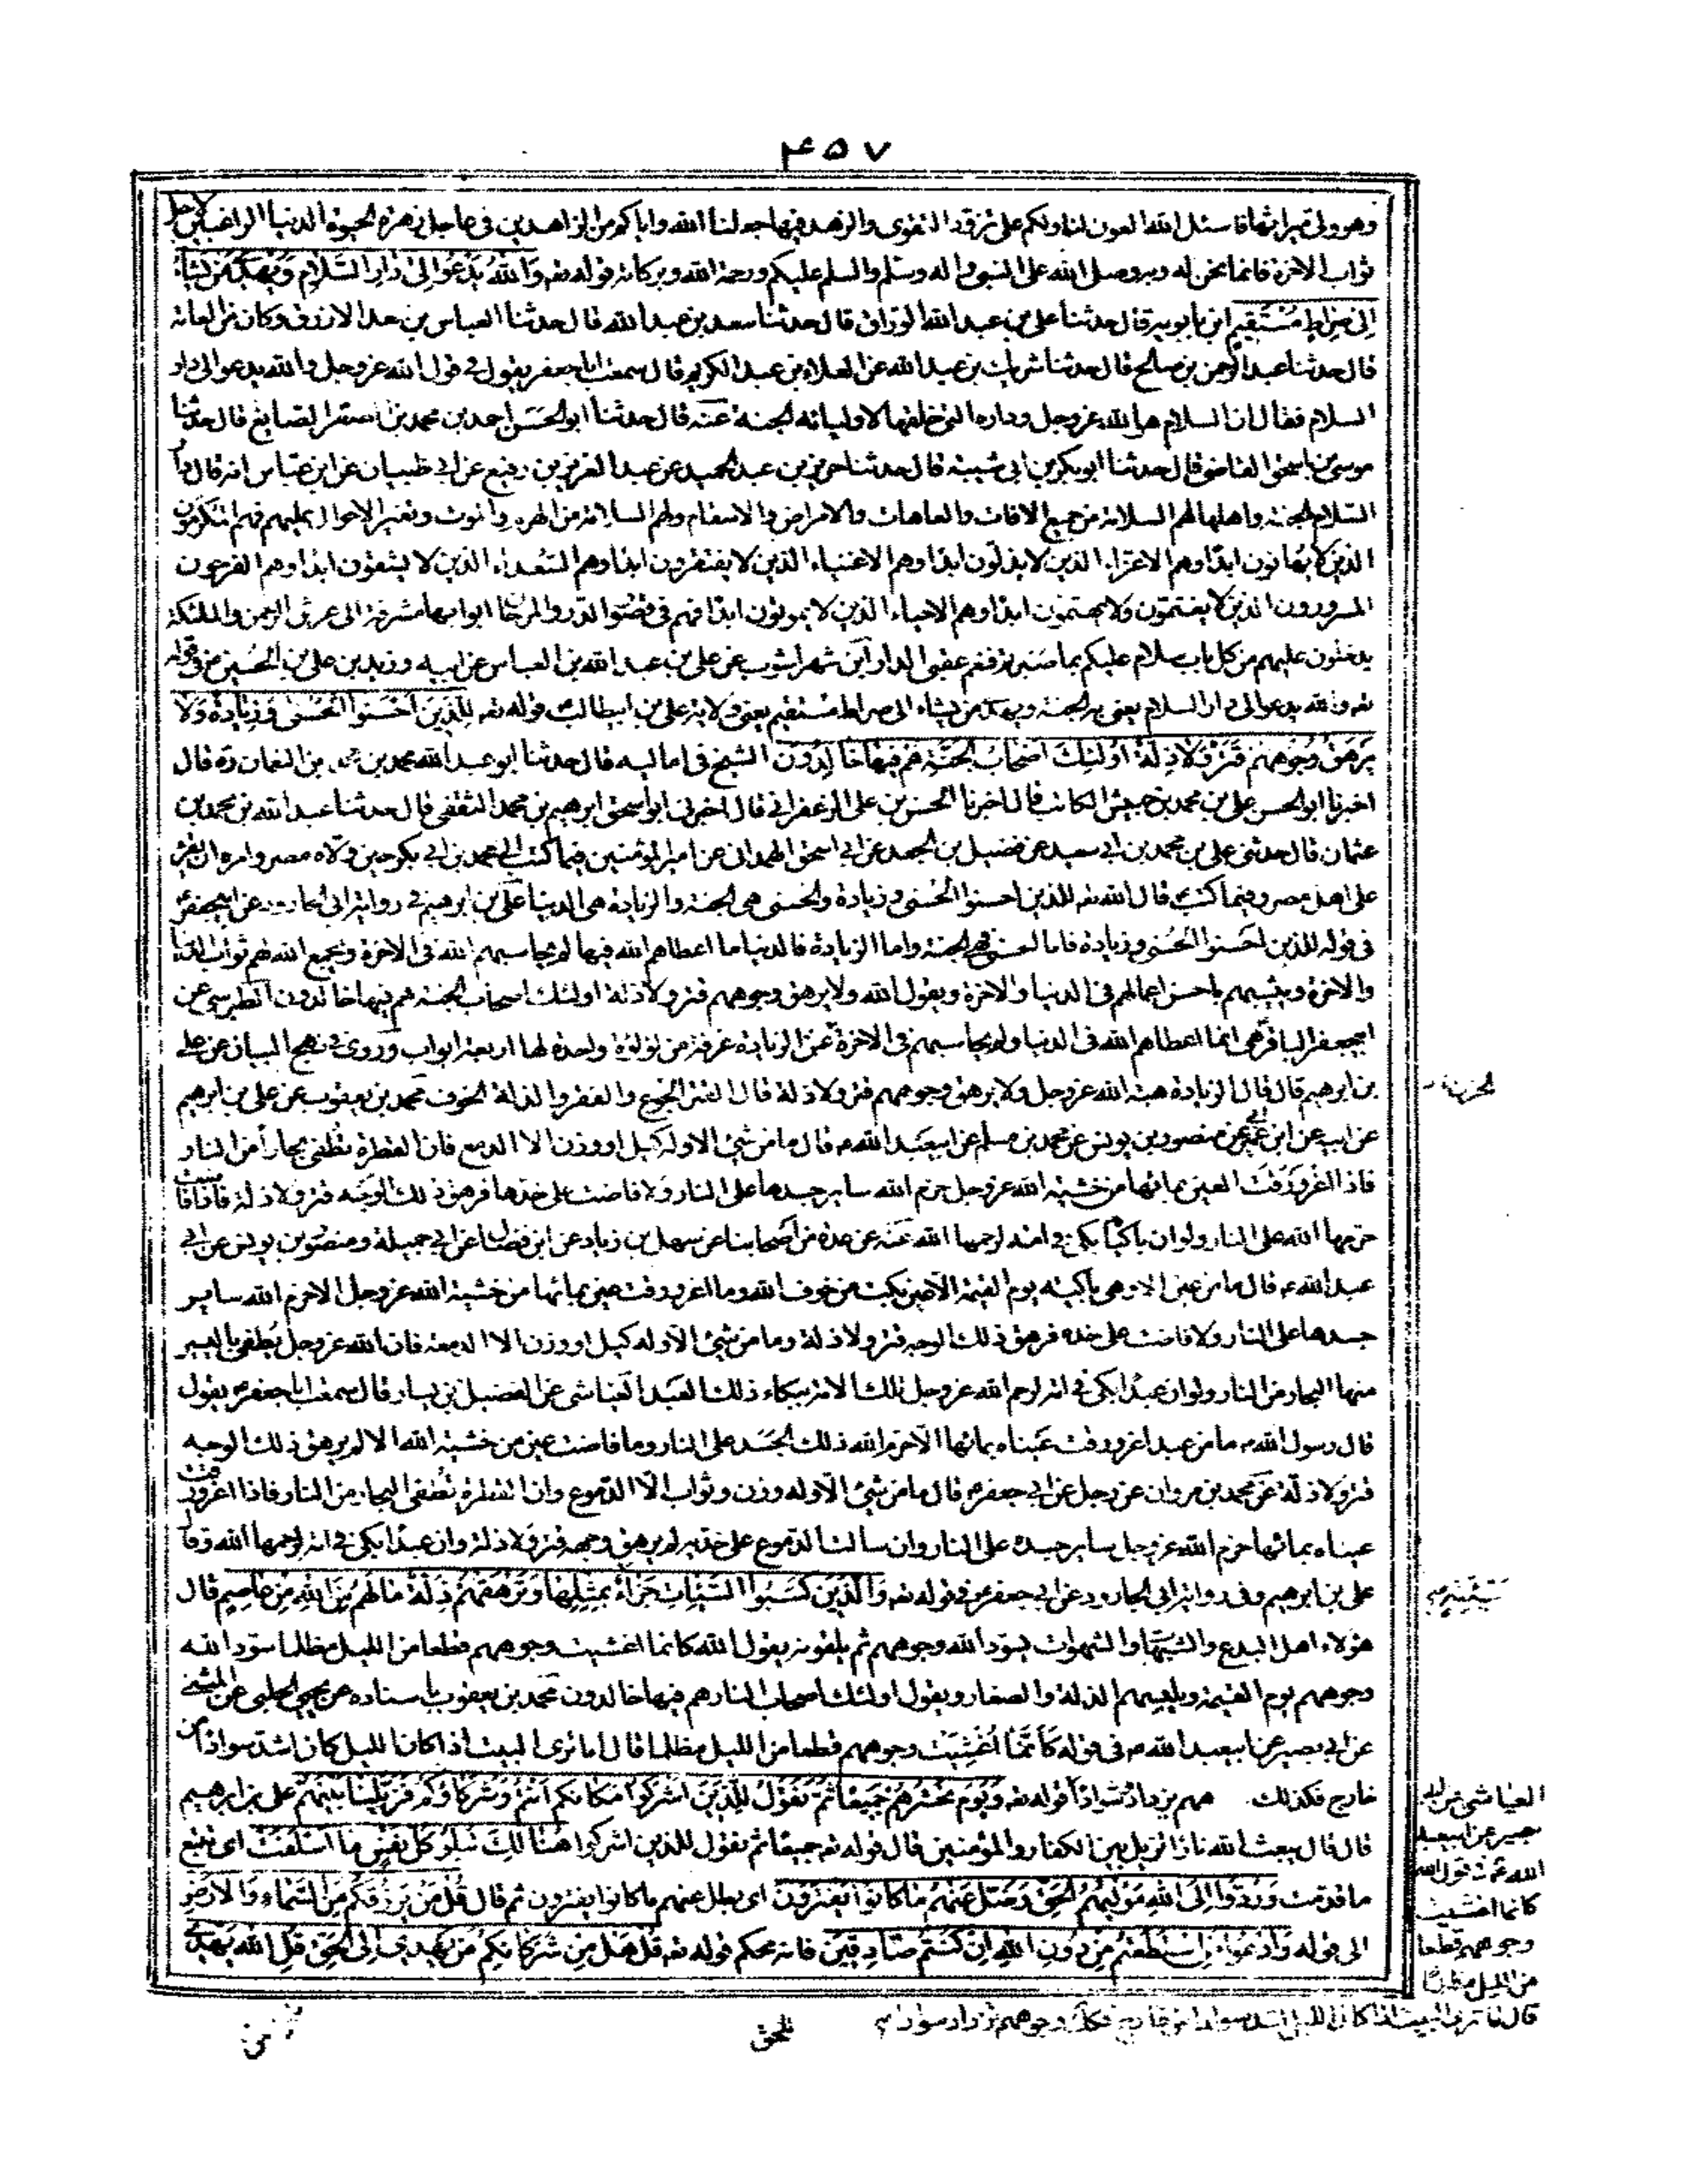 ٤٥٧
وهو ولي ميراثها فاسئل الله العون لنا ولكم على تزود التقوى والزهد فيها جعلنا الله واياكم من الزاهدين في عاجل زهرة الحيوة الدنيا الراغبين لاجل
ثواب الاخرة فانما نحن له وبه وصلى الله على النبي واله وسلم والسلم عليكم ورحمة الله وبركاته قوله تع وَاللهُ يَدْعُوا إِلَى دَارِ السَّلَامِ وَيَهْدِي مَنْ يَشَاءُ
إِلَى صِرَاطٍ مُسْتَقِيمٍ ابن بابويه قال حدثنا علي بن عبد الله الوراق قال حدثنا سعد بن عبد الله قال حدثنا العباس بن سعد الازرق وكان من العامة
قال حدثنا عبد الرحمن بن صالح قال حدثنا شريك بن عبد الله عن العلاء بن عبد الكريم قال سمعت ابا جعفر يقول في قول الله عز وجل والله يدعو الى دار
السلام فقال ان السلام هو الله عز وجل وداره التي خلقها لاوليائه الجنة عنه قال حدثنا ابو الحسن احمد بن محمد بن الصقر الصايغ قال حدثنا
موسى بن اسحق القاضي قال حدثنا ابو بكر بن ابي شيبة قال حدثنا جرير بن عبد الحميد عن عبد العزيز بن رفيع عن ابي ظبيان عن ابن عباس انه قال دار
السلام الجنة واهلها لهم السلامة من جميع الافات والعاهات والامراض والاسقام ولهم السلامة من الهرم والموت وتغير الاحوال عليهم فهم المكرمون
الذين لا يهانون ابدا وهم الاعزاء الذين لا يذلون ابدا وهم الاغنياء الذين لا يفتقرون ابدا وهم السعداء الذين لا يشقون ابدا وهم الفرحون
المسرورون الذين لا يغتمون ولا يهتمون ابدا وهم الاحياء الذين لا يموتون ابدا فهم في قصور الدر والمرجان ابوابها مشرعة الى عرش الرحمن والملئكة
يدخلون عليهم من كل باب سلام عليكم بما صبرتم فنعم عقبى الدار ابن شهر اشوب عن علي بن عبد الله بن العباس عن ابيه وزيد بن علي بن الحسين في قوله
تع والله يدعو الى دار السلام يعني به الجنة ويهدي من يشاء الى صراط مستقيم يعني ولاية علي بن ابيطالب قوله تع لِلَّذِينَ أَحْسَنُوا الْحُسْنَى وَزِيَادَةٌ وَلَا
يَرْهَقُ وُجُوهَهُمْ قَتَرٌ وَلَا ذِلَّةٌ أُولَئِكَ أَصْحَابُ الْجَنَّةِ هُمْ فِيهَا خَالِدُونَ الشيخ في اماليه قال حدثنا ابو عبد الله محمد بن محمد بن النعمان ره قال
اخبرنا ابو الحسن علي بن محمد بن حبيش الكاتب قال اخبرنا الحسن بن علي الزعفراني قال اخبرني ابو اسحق ابرهيم بن محمد الثقفي قال حدثنا عبد الله بن محمد بن
عثمان قال حدثني علي بن محمد بن ابي سعيد عن فضيل بن الجعد عن ابي اسحق الهمداني عن امير المؤمنين فيما كتب الى محمد بن ابي بكر حين ولاه مصر وامره ان يقرء
على اهل مصر وفيما كتب قال الله تع للذين احسنوا الحسنى وزيادة والحسنى هي الجنة والزيادة هي الدنيا علي بن ابرهيم في رواية ابي الجارود عن ابي جعفر
في قوله للذين احسنوا الحسنى وزيادة فاما الحسنى فهي الجنة واما الزيادة فالدنيا ما اعطاهم الله فيها لم يحاسبهم الله في الاخرة ويجمع الله لهم ثواب الدنيا
والاخرة ويثيبهم باحسن اعمالهم في الدنيا والاخرة ويقول الله ولا يرهق وجوههم قتر ولا ذلة اولئك اصحاب الجنة هم فيها خالدون الطبرسي عن
ابيجعفر الباقر هي انما اعطاهم الله في الدنيا ولم يحاسبهم في الاخرة عن الزيادة غرفة من لؤلؤة واحدة لها اربعة ابواب وروى في نهج البيان عن علي
بن ابرهيم قال قال الزيادة هبة الله عز وجل ولا يرهق وجوههم قتر ولا ذلة قال القتر الجوع والفقر والذلة الخوف محمد بن يعقوب عن علي بن ابرهيم
عن ابيه عن ابن ابي عمير عن منصور بن يونس عن محمد بن مسلم عن ابيعبد الله ع قال ما من شئ الا وله كيل او وزن الا الدموع فان القطرة تطفي بحارا من النار
فاذا اغرورقت العين بمائها من خشية الله عز وجل حرم الله ساير جسدها على النار ولا فاضت على خدها فرهق ذلك الوجه قتر ولا ذلة فاذا فاضت
حرمها الله على النار ولو ان باكيا بكى في امة لرحمها الله عنه عن عدة من اصحابنا عن سهل بن زياد عن ابن فضال عن ابي جميلة ومنصور بن يونس عن ابي
عبد الله ع قال ما من عين الا وهي باكية يوم القيمة الا عين بكت من خوف الله وما اغرورقت عين بمائها من خشية الله عز وجل الا حرم الله ساير
جسدها على النار ولا فاضت على خده فرهق ذلك الوجه قتر ولا ذلة وما من شئ الا وله كيل او وزن الا الدمعة فان الله عز وجل يطفي باليسير
منها البحار من النار ولو ان عبدا بكى في امة لرحم الله عز وجل تلك الامة ببكاء ذلك العبد العياشي عن الفضيل بن يسار قال سمعت ابا جعفر ع يقول
قال رسول الله ص ما من عبد اغرورقت عيناه بمائها الا حرم الله ذلك الجسد على النار وما فاضت عين من خشية الله الا لم يرهق ذلك الوجه
قتر ولا ذلة عن محمد بن مروان عن رجل عن ابي جعفر ع قال ما من شئ الا وله وزن وثواب الا الدموع وان القطرة تطفي البحار من النار فاذا اغرورقت
عيناه بمائها حرم الله عز وجل ساير جسده على النار وان سالت الدموع على خديه لم يرهق وجهه قتر ولا ذلة وان عبدا بكى في امة لرحمها الله وقال
علي بن ابرهيم وفي رواية ابي الجارود عن ابي جعفر ع في قوله تع وَالَّذِينَ كَسَبُوا السَّيِّئَاتِ جَزَاءُ سَيِّئَةٍ بِمِثْلِهَا وَتَرْهَقُهُمْ ذِلَّةٌ مَا لَهُمْ مِنَ اللهِ مِنْ عَاصِمٍ قال
هؤلاء اهل البدع والشبهات والشهوات يسود الله وجوههم ثم يلقونه يقول الله كانما اغشيت وجوههم قطعا من الليل مظلما سود الله
وجوههم يوم القيمة ويلبسهم الذلة والصغار ويقول اولئك اصحاب النار هم فيها خالدون محمد بن يعقوب باسناده عن يحيى الحلبي عن المثنى
عن ابي بصير عن ابيعبد الله ع في قوله كَأَنَّمَا أُغْشِيَتْ وجوههم قطعا من الليل مظلما قال اما ترى البيت اذا كان الليل كان اشد سوادا من
خارج فكذلك هم يزدادون سوادا قوله تع وَيَوْمَ نَحْشُرُهُمْ جَمِيعًا ثُمَّ نَقُولُ لِلَّذِينَ أَشْرَكُوا مَكَانَكُمْ أَنْتُمْ وَشُرَكَاؤُكُمْ فَزَيَّلْنَا بَيْنَهُمْ علي بن ابرهيم
قال قال يبعث الله نارا تزيل بين الكفار والمؤمنين قال قوله تع جميعا ثم نقول للذين اشركوا هُنَالِكَ تَبْلُو كُلُّ نَفْسٍ مَا أَسْلَفَتْ اى تتبع
ما قدمت وَرُدُّوا إِلَى اللهِ مَوْلَيهُمُ الْحَقِّ وَضَلَّ عَنْهُمْ مَا كَانُوا يَفْتَرُونَ اى بطل عنهم ما كانوا يفترون ثم قال قُلْ مَنْ يَرْزُقُكُمْ مِنَ السَّمَاءِ وَالْأَرْضِ
الى قوله وَادْعُوا مَنِ اسْتَطَعْتُمْ مِنْ دُونِ اللهِ إِنْ كُنْتُمْ صَادِقِينَ فانه محكم قوله تع قُلْ هَلْ مِنْ شُرَكَائِكُمْ مَنْ يَهْدِي إِلَى الْحَقِّ قُلِ اللهُ يَهْدِي
العياشي عن ابي
بصير عن ابيعبد
الله ع في قول الله
كانما اغشيت
وجوههم قطعا
من الليل مظلما
قال اما ترى البيت اذا كان الليل اشد سوادا من خارج فكذلك وجوههم تزداد سوادا
للحق